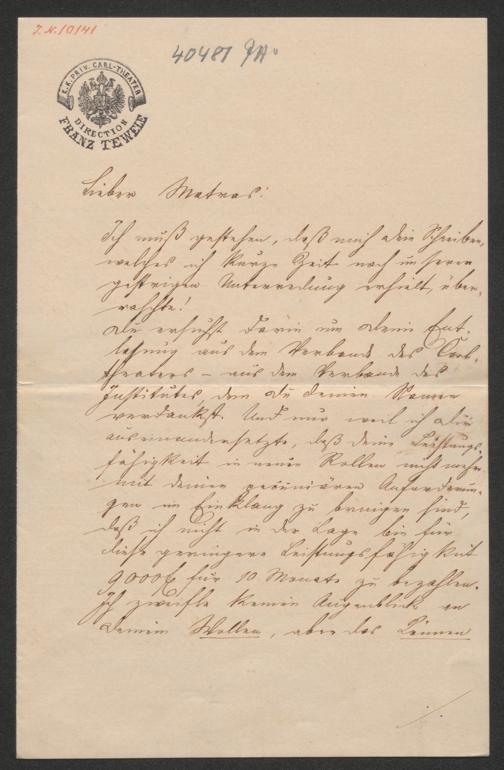 I.N. 19141
40481 JA
K.K. PRIV. CARL-THEATER
DIRECTION
FRANZ TEWELE
Lieber Matras!
Ich muß gestehen, daß mich dein Schreiben,
welches ich kurze Zeit nach unserer
gestrigen Unterredung erhielt, über-
raschte!
Du ersuchst darin um deine Ent-
lassung aus dem Verbande des Carl-
theaters – aus dem Verbande des
Institutes, dem du deinen Namen
verdankst. Und nur weil ich dir
auseinandersetzte, daß deine Leistungs-
fähigkeit in neuen Rollen nicht mehr
mit deinen pecuniären Anforderun-
gen im Einklang zu bringen sind,
daß ich nicht in der Lage bin für
diese geringere Leistungsfähigkeit
9000 f für 10 Monate zu bezahlen.
Ich zweifle keinen Augenblick an
deinem Wollen, aber das Können
./.